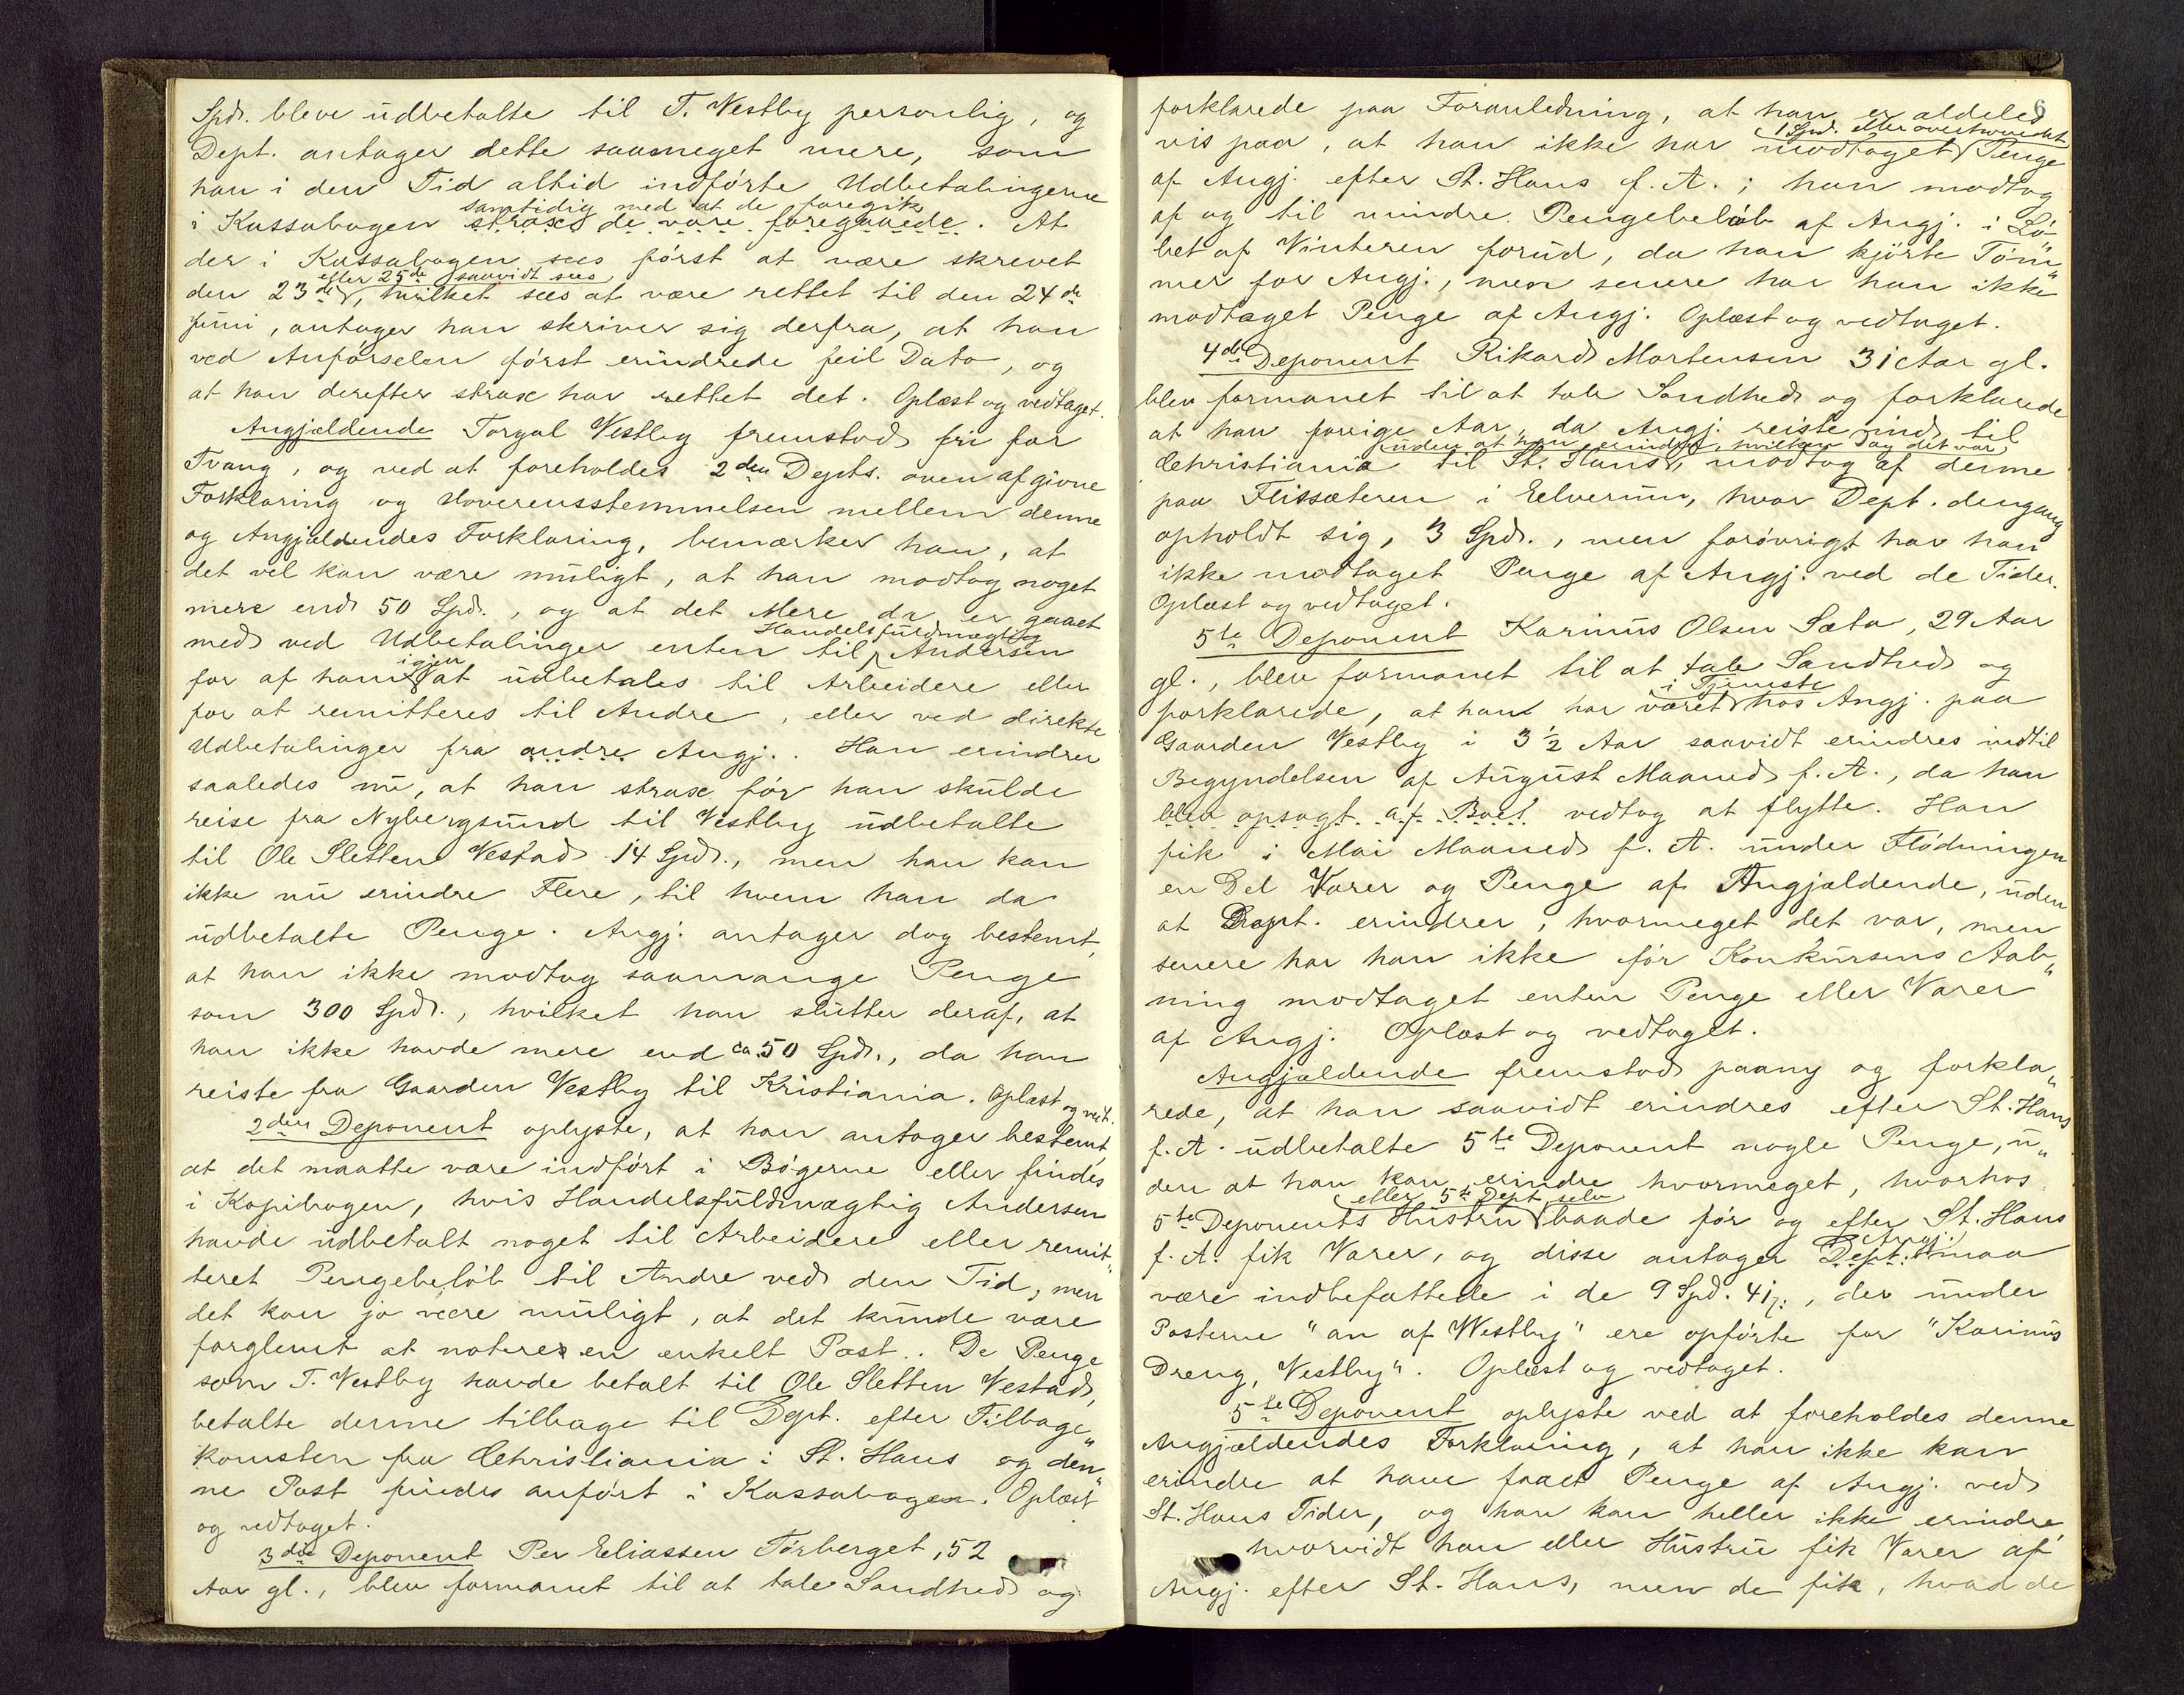 Spd. bleve udbetalte til T. Vestby personlig, og
Dept. antager dette saameget mere, som
han i den Tid altid indførte Udbetalingerne
samtidig med at de foregik
i Kassabogen strax de vare foregaaede. At
der i Kassabogen sees først at være skrevet
eller 25de saavidt sees
den 23de, hvilket sees at være rettet til den 24de
Juni, antager han skriver sig derfra, at han
ved Anførselen først erindrede feil Dato, og
at han derefter strax har rettet det. Oplæst og vedtaget.
Angjældende Torgal Vestby fremstod fri for
Tvang, og ved at foreholdes 2den Depts. oven afgivne
Forklaring og Uoverensstemmelsen mellem denne
og Angjældendes Forklaring, bemærker han, at
det vel kan være muligt, at han modtog noget
mere end 50 Spd., og at det Mere da er gaaet
Handelsfuldmægtig
med ved Udbetalinger enten til Andersen
igjen
for af ham at udbetales til Arbeidere eller
for at remitteres til Andre, eller ved direkte
Udbetalinger fra andre Angj.. Han erindrer
saaledes nu, at han strax før han skulde
reise fra Nybergsund til Vestby udbetalte
til Ole Sletten Vestad 14 Spd., men han kan
ikke nu erindre Flere, til hvem han da
udbetalte Penge. Angj. antager dog bestemt,
at han ikke modtog saamange Penge
som 300 Spd., hvilket han slutter deraf, at
han ikke havde mere end ca. 50 Spd., da han
reiste fra Gaarden Vestby til Kristiania. Oplæst og vedt.
2den Deponent oplyste, at han antager bestemt,
at det maatte være indført i Bøgerne eller findes
i Kopibogen, hvis Handelsfuldmægtig Andersen
havde udbetalt noget til Arbeidere eller remit„
teret Pengebeløb til Andre ved den Tid, men
det kan jo være muligt, at det kunde være
forglemt at noteres en enkelt Post.. De Penge
som T. Vestby havde betalt til Ole Sletten Vestad,
betalte denne tilbage til Dept. efter Tilbage„
komsten fra Christiania i St. Hans og den„
ne Post findes anført i Kassabogen. Oplæst
og vedtaget.
3die Deponent Per Eliassen Tørberget, 52
Aar gl., blev formanet til at tale Sandhed og
6
forklarede paa Foranledning, at han er aldeles
1 Spd. eller overhovedet
vis paa, at han ikke har modtaget Penge
af Angj. efter St. Hans f. A.; han modtog
af og til mindre Pengebeløb af Angj. i Lø„
bet af Vinteren forud, da han kjørte Tøm„
mer for Angj., men senere har han ikke
modtaget Penge af Angj. Oplæst og vedtaget.
4de Deponent Rikard Mortensen 31 Aar gl.
blev formanet til at tale Sandhed og forklarede
at han forrige Aar, da Angj. reiste ind til
uden at han erindrer, hvilken Dag det var
Christiania til St. Hans, modtog af denne
paa Flissæteren i Elverum, hvor Dept. dengang
opholdt sig, 3 Spd., men forøvrigt har han
ikke modtaget Penge af Angj. ved de Tider.
Oplæst og vedtaget.
5te Deponent Karinus Olsen Sæta, 29 Aar
gl., blev formanet til at tale Sandhed og
i Tjeneste
forklarede, at han har været hos Angj. paa
Gaarden Vestby i 3½ Aar saavidt erindres indtil
Begyndelsen af August Maaned f. A., da han
blev opsagt af Boet vedtog at flytte. Han
fik i Mai Maaned f. A. under Flødningen
en Del Varer og Penge af Angjældende, uden
at Dept. erindrer, hvormeget det var, men
senere har han ikke før Konkursens Aab„
ning modtaget enten Penge eller Varer
af Angj. Oplæst og vedtaget.
Angjældende fremstod paany og forkla„
rede, at han saavidt erindres efter St. Hans
f. A. udbetalte 5te Deponent nogle Penge, u„
den at han kan erindre hvormeget, hvorhos
eller 5te Dept. selv
5te Deponents Hustru baade før og efter St. Hans
Angj.
f. A. fik Varer, og disse antager Dept. maa
være indbefattede i de 9 Spd. 41 ß., der under
Posterne "an af Westby" ere opførte for "Karinus
Dreng, Vestby". Oplæst og vedtaget.
5te Deponent oplyste ved at foreholdes denne
Angjældendes Forklaring, at han ikke kan
erindre at have faaet Penge af Angj. ved
St. Hans Tider, og han kan heller ikke erindre,
hvorvidt han eller Hustru fik Varer af
Angj. efter St. Hans, men de fik, hvad de